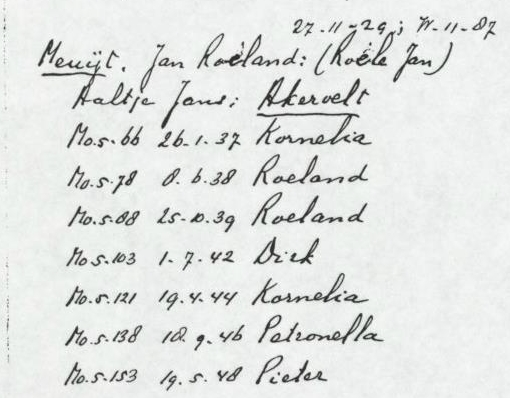 27-11-29; W-11-87
Meuijt. Jan Roeland: (Roële Jan)
Aaltje Jans: Akervelt
Mo.s.66 26.1.37 Kornelia
Mo.s.78 8.6.38 Roeland
Mo.s.88 25-10.39 Roeland
Mo.s.103 1-7.42 Dirk
Mo.s.121 19.4.44 Kornelia
Mo.s.138 18.9.46 Petronella
Mo.s.153 19.5.48 Pieter